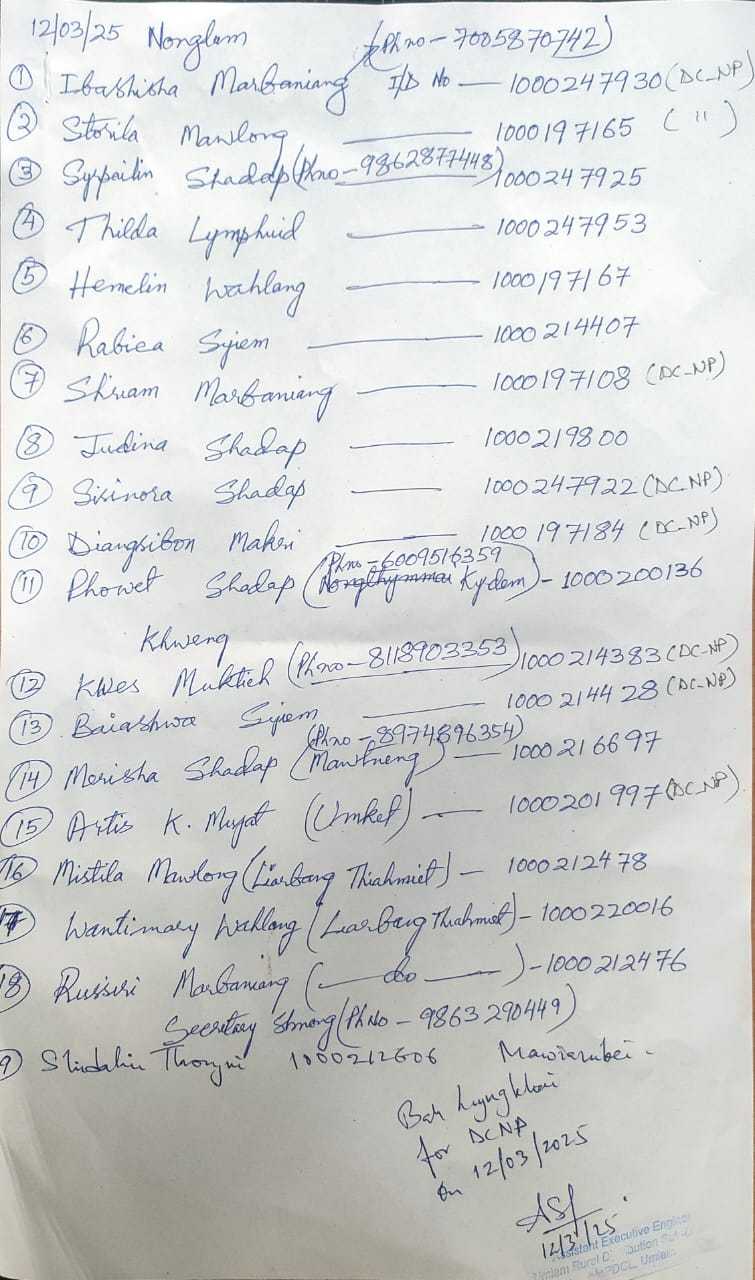 12/03/25 Nonglam (Ph no - 7005870742)
① Ibashisha Marbaniang I/D No — 1000247930 (DC-NP)
② Storila Mawlong — 1000197165 ( " )
③ Syrpailin Shadap (Ph no - 9862877448) 1000247925
④ Thilda Lymphuid — 1000247953
⑤ Hemelin Wahlang — 1000197167
⑥ Rabica Syiem — 1000214407
⑦ Shriam Marbaniang — 1000197108 (DC-NP)
⑧ Judina Shadap — 1000219800
⑨ Sisinora Shadap — 1000247922 (DC-NP)
⑩ Diangsibon Makri — 1000197184 (DC-NP)
Ph no - 6009516359
⑪ Phowet Shadap (Nongthymmai Kydem) - 1000200136
Khweng
⑫ Kwes Muktieh (Ph no - 8118903353) 1000214383 (DC-NP)
⑬ Baiashwa Syiem — 1000214428 (DC-NP)
(Ph no - 8974896354)
⑭ Merisha Shadap (Mawtneng) — 1000216697
⑮ Artis K. Mujat (Umket) — 1000201997 (DC-NP)
16 Mistila Mawlong (Liarbang Thiahmiet) — 1000212478
17 Wantimary Wahlang (Liarbang Thiahmiet) - 1000220016
18 Russiri Marbaniang (— do —) - 1000212476
Secretary Shnong (Ph No - 9863290449)
9) Shidalin Thongni 1000212606
Bah Lyngkhoi
for DCNP
on 12/03/2025
12/3/25
Assistant Executive Engineer
Umiam Rural Distribution Sub-
MePDCL, Umiam